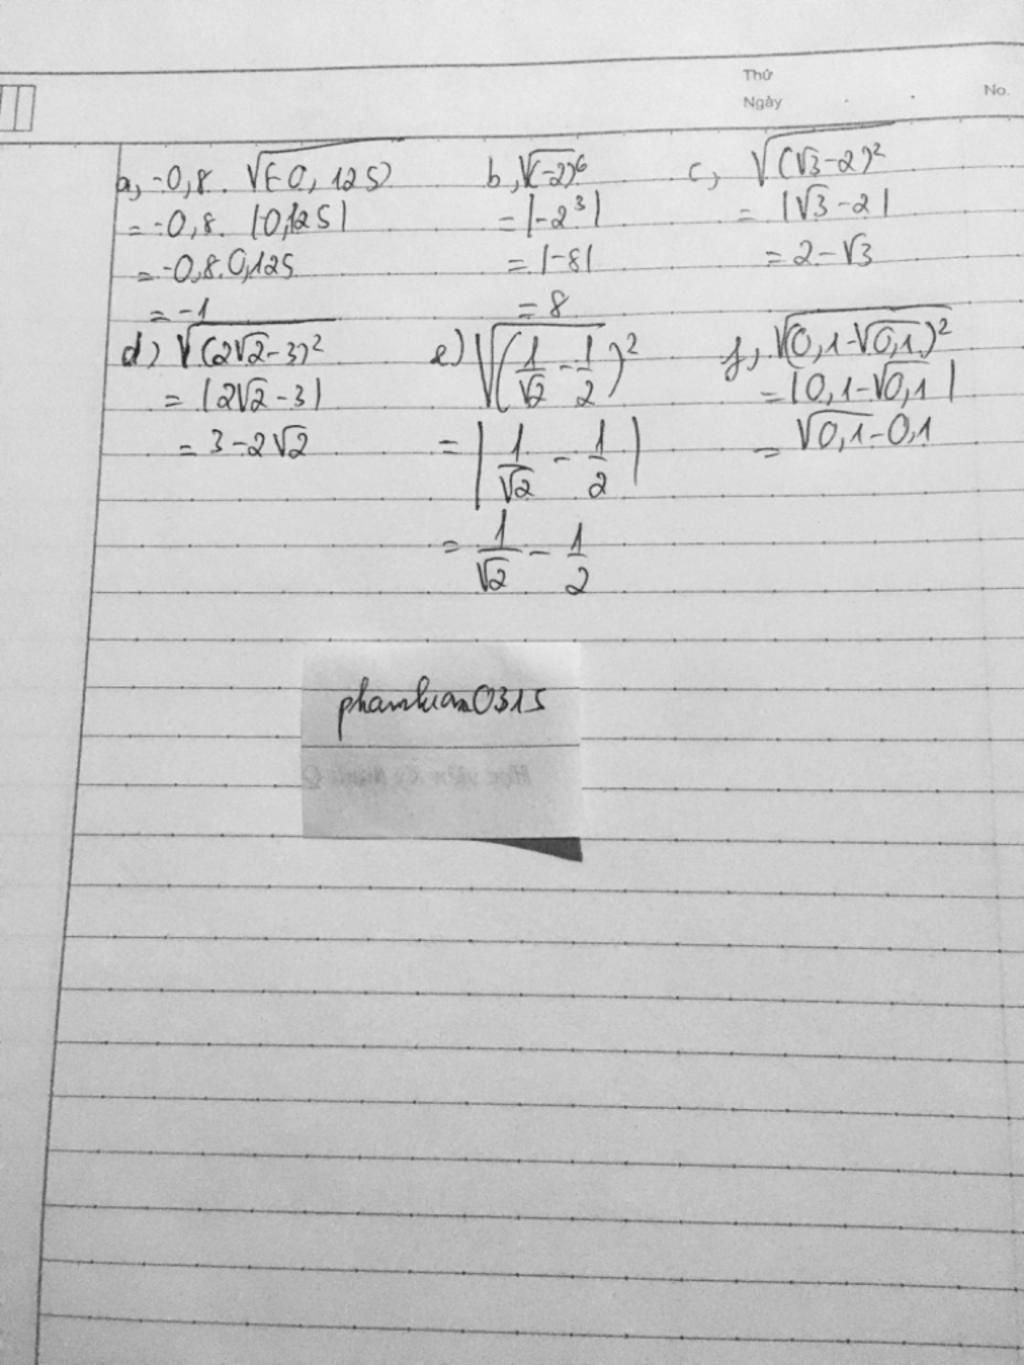 Thứ
Ngày
No.
a, -0,8. √(-0,125)
= -0,8. |0,125|
= -0,8.0,125
= -1
b, √(-2)⁶
= |-2³|
= |-8|
= 8
c, √(√3-2)²
= |√3-2|
= 2-√3
d) √(2√2-3)²
= |2√2-3|
= 3-2√2
e) √(1/√2 - 1/2)²
= |1/√2 - 1/2|
= 1/√2 - 1/2
f, √(0,1-√0,1)²
= |0,1-√0,1|
= √0,1-0,1